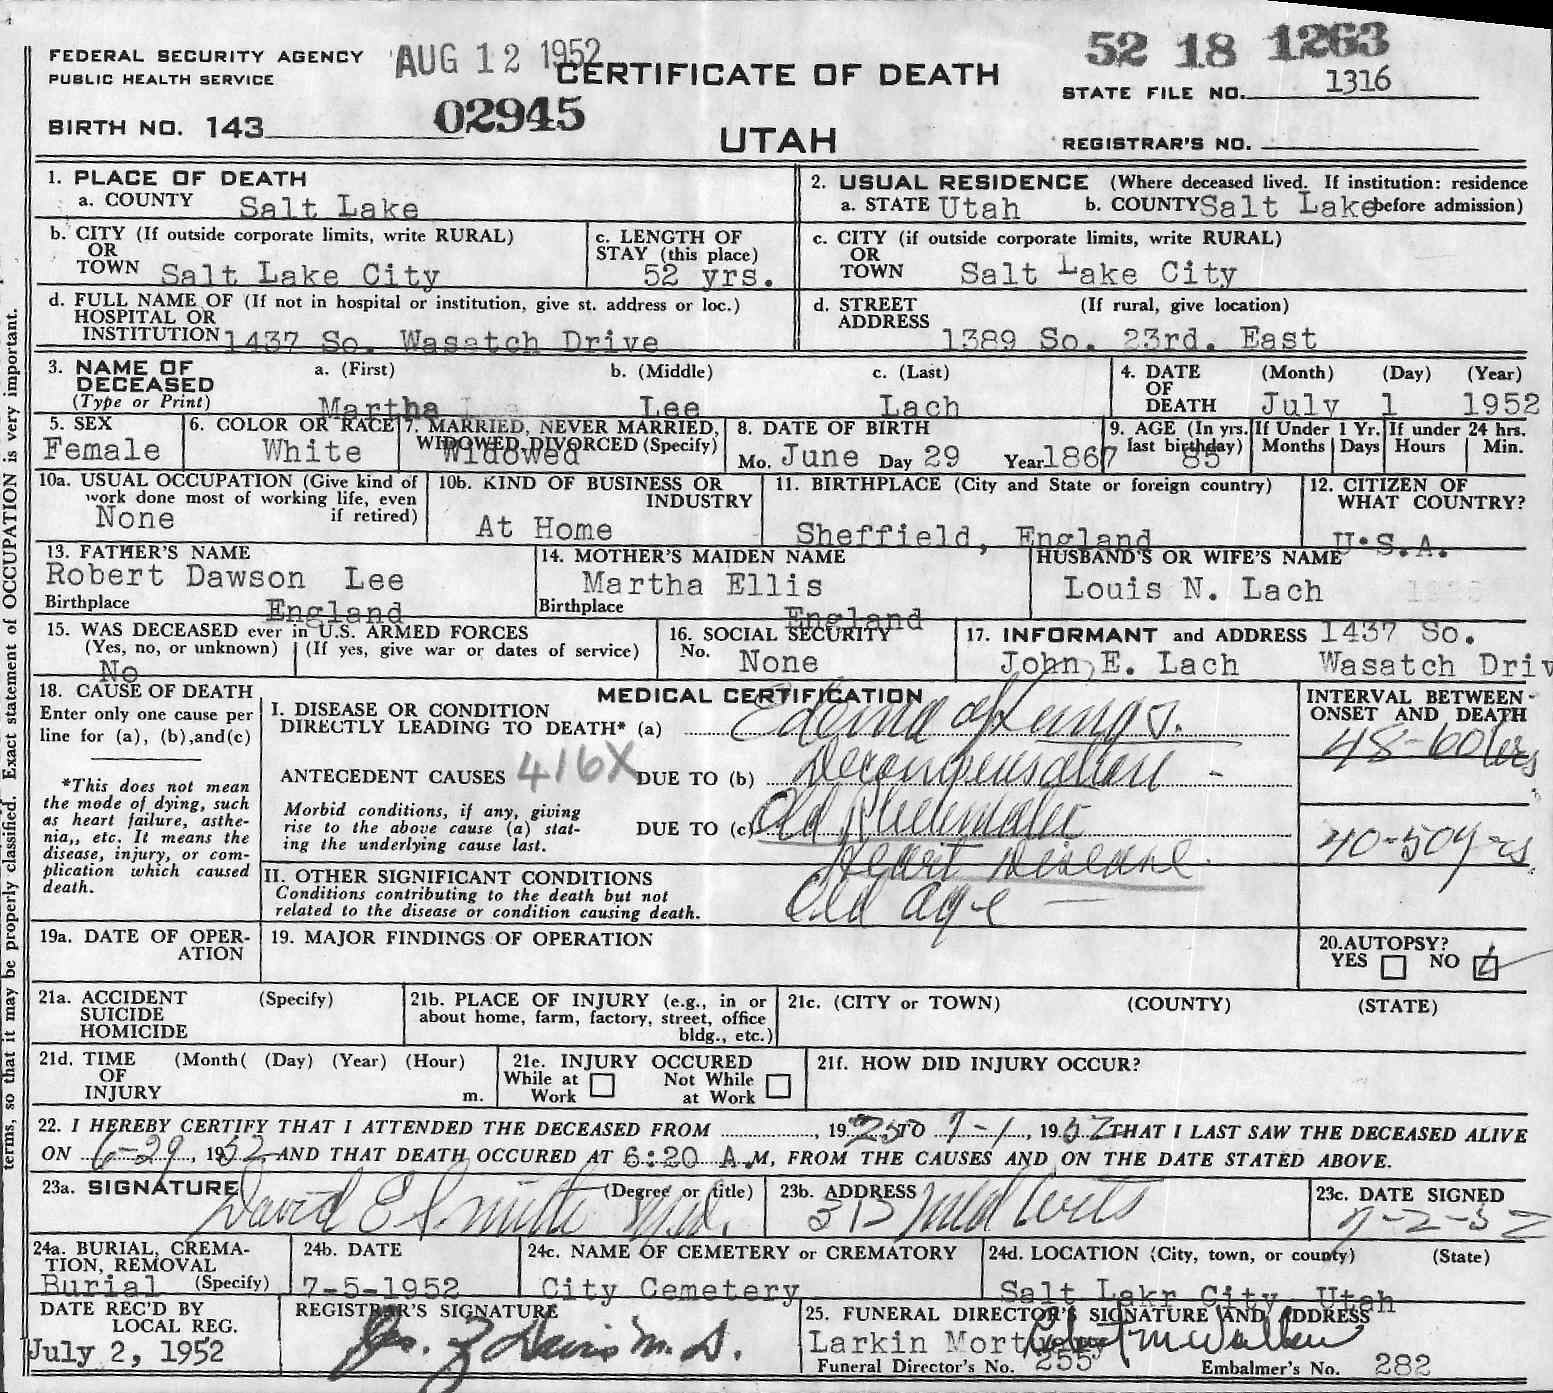 AUG 12 1952
52 18 1263
FEDERAL SECURITY AGENCY
PUBLIC HEALTH SERVICE
CERTIFICATE OF DEATH
STATE FILE NO. 1316
BIRTH NO. 143 02945
UTAH
REGISTRAR'S NO.
1. PLACE OF DEATH
a. COUNTY Salt Lake
2. USUAL RESIDENCE (Where deceased lived. If institution: residence
a. STATE Utah b. COUNTY Salt Lake before admission)
b. CITY (If outside corporate limits, write RURAL)
OR
TOWN Salt Lake City
c. LENGTH OF
STAY (this place)
52 yrs.
c. CITY (if outside corporate limits, write RURAL)
OR
TOWN Salt Lake City
d. FULL NAME OF (If not in hospital or institution, give st. address or loc.)
HOSPITAL OR
INSTITUTION 1437 So. Wasatch Drive
d. STREET (If rural, give location)
ADDRESS 1389 So. 23rd. East
3. NAME OF
DECEASED
(Type or Print)
a. (First) b. (Middle) c. (Last)
Martha Lee Lach
4. DATE
OF
DEATH
(Month) (Day) (Year)
July 1 1952
5. SEX
Female
6. COLOR OR RACE
White
7. MARRIED, NEVER MARRIED,
WIDOWED, DIVORCED (Specify)
Widowed
8. DATE OF BIRTH
Mo. June Day 29 Year 1867
9. AGE (In yrs.
last birthday)
85
If Under 1 Yr.
Months Days
If under 24 hrs.
Hours Min.
10a. USUAL OCCUPATION (Give kind of
work done most of working life, even
if retired)
None
10b. KIND OF BUSINESS OR
INDUSTRY
At Home
11. BIRTHPLACE (City and State or foreign country)
Sheffield, England
12. CITIZEN OF
WHAT COUNTRY?
U.S.A.
13. FATHER'S NAME
Robert Dawson Lee
Birthplace England
14. MOTHER'S MAIDEN NAME
Martha Ellis
Birthplace England
HUSBAND'S OR WIFE'S NAME
Louis N. Lach
15. WAS DECEASED ever in U.S. ARMED FORCES
(Yes, no, or unknown) (If yes, give war or dates of service)
No
16. SOCIAL SECURITY
No. None
17. INFORMANT and ADDRESS 1437 So.
John E. Lach Wasatch Driv
18. CAUSE OF DEATH
Enter only one cause per
line for (a), (b), and (c)
*This does not mean
the mode of dying, such
as heart failure, asthe-
nia,, etc. It means the
disease, injury, or com-
plication which caused
death.
MEDICAL CERTIFICATION
I. DISEASE OR CONDITION
DIRECTLY LEADING TO DEATH* (a) Edema of Lungs.
ANTECEDENT CAUSES 416X DUE TO (b) Decompensation -
Morbid conditions, if any, giving
rise to the above cause (a) stat-
ing the underlying cause last.
DUE TO (c) Old Rheumatic
Heart Disease.
II. OTHER SIGNIFICANT CONDITIONS
Conditions contributing to the death but not
related to the disease or condition causing death.
Old age -
INTERVAL BETWEEN
ONSET AND DEATH
48-60 hrs
40-50 yrs
19a. DATE OF OPER-
ATION
19. MAJOR FINDINGS OF OPERATION
20. AUTOPSY?
YES NO
21a. ACCIDENT (Specify)
SUICIDE
HOMICIDE
21b. PLACE OF INJURY (e.g., in or
about home, farm, factory, street, office
bldg., etc.)
21c. (CITY or TOWN) (COUNTY) (STATE)
21d. TIME (Month( (Day) (Year) (Hour)
OF
INJURY m.
21e. INJURY OCCURED
While at Not While
Work at Work
21f. HOW DID INJURY OCCUR?
22. I HEREBY CERTIFY THAT I ATTENDED THE DECEASED FROM , 1925 TO 7-1, 1952 THAT I LAST SAW THE DECEASED ALIVE
ON 6-29, 1952 AND THAT DEATH OCCURED AT 6:20 A.M, FROM THE CAUSES AND ON THE DATE STATED ABOVE.
23a. SIGNATURE (Degree or title)
David E Smith M.D.
23b. ADDRESS
315
23c. DATE SIGNED
7-2-52
24a. BURIAL, CREMA-
TION, REMOVAL
Burial (Specify)
24b. DATE
7-5-1952
24c. NAME OF CEMETERY or CREMATORY
City Cemetery
24d. LOCATION (City, town, or county) (State)
Salt Lakr City, Utah
DATE REC'D BY
LOCAL REG.
July 2, 1952
REGISTRAR'S SIGNATURE
M.D.
25. FUNERAL DIRECTOR'S SIGNATURE AND ADDRESS
Larkin Mortuary
Funeral Director's No. 255 Embalmer's No. 282
terms, so that it may be properly classified. Exact statement of OCCUPATION is very important.